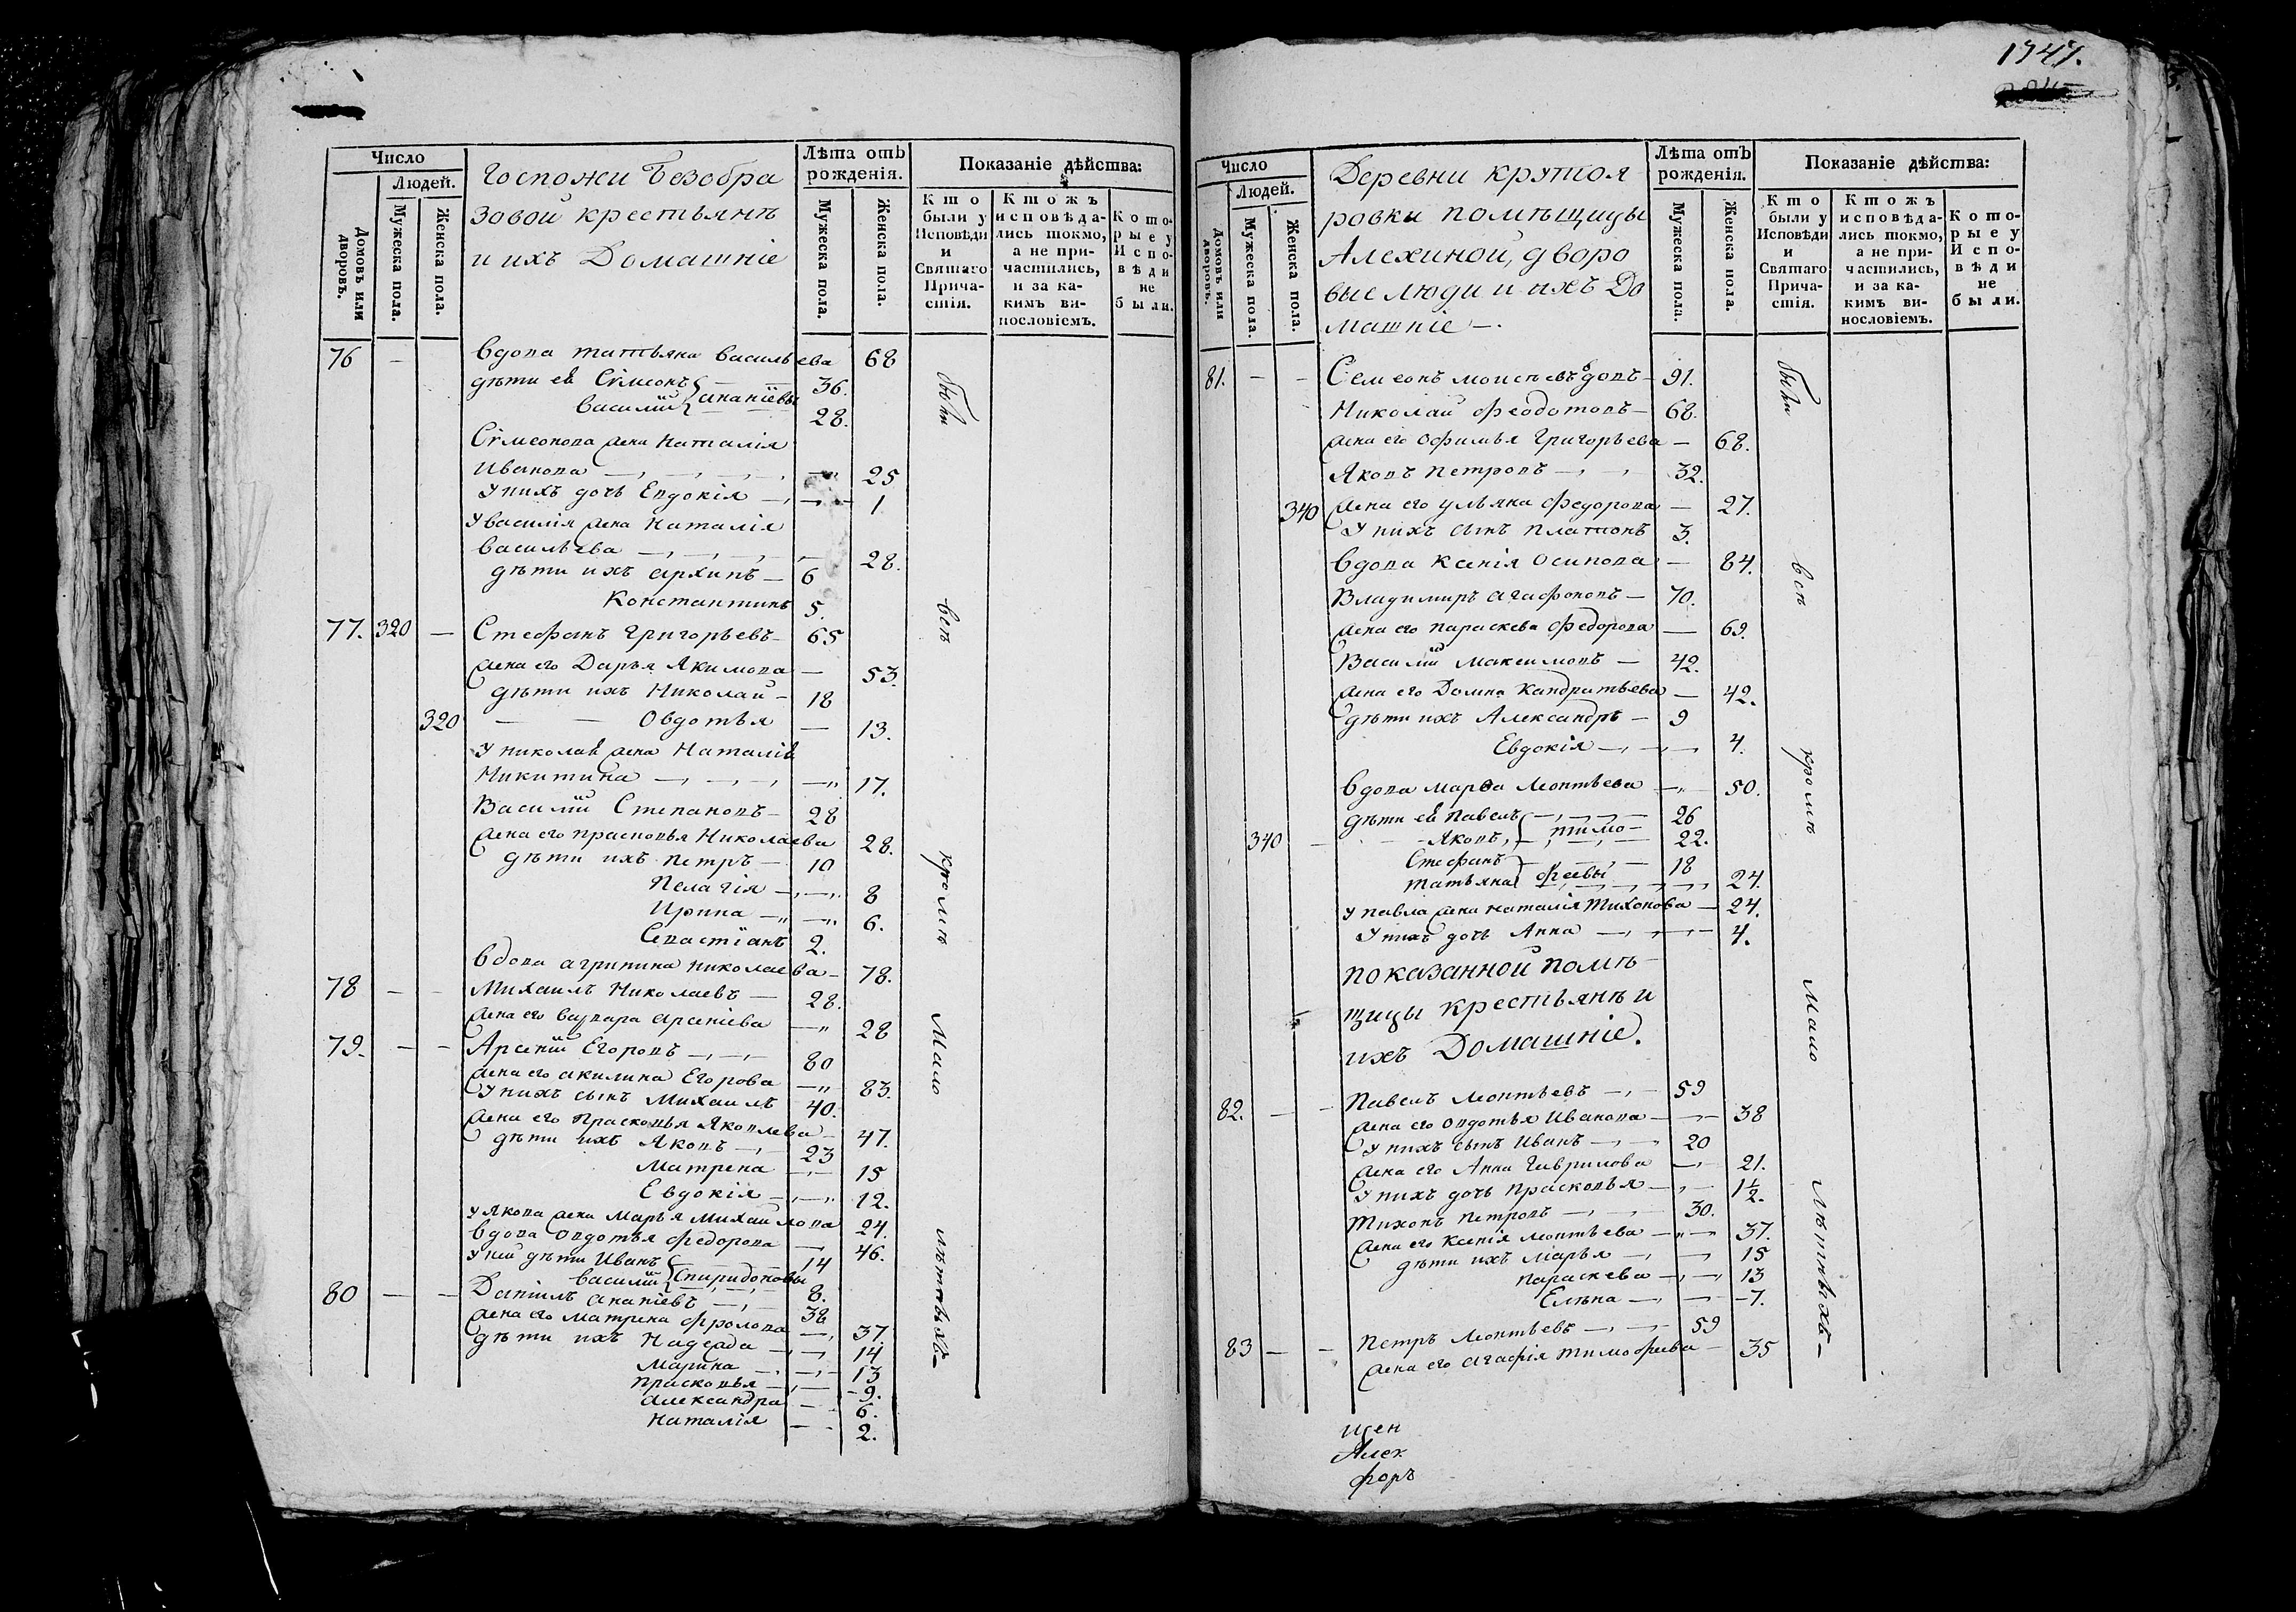 1747.
Число
Людей.
Домовъ или дворовъ.
Мужеска пола.
Женска пола.
Госпожи Безобра
зовой крестьянъ
и ихъ Домашніе
Лѣта отъ рожденія.
Мужеска пола.
Женска пола.
Показаніе дѣйства:
Кто были у Исповѣди и Святаго Причастія.
Ктожъ исповѣдались токмо, а не причастились, и за какимъ винословіемъ.
Которые у Исповѣди не были.
76 — вдова татьяна васильева 68
дѣти ея Сѵмеонъ — 36.
василій } ананіевы 28.
Сѵмеонова жена Наталія
Иванова — 25
у нихъ дочь Евдокія — 1
у василія жена Наталія
васильева — 28.
дѣти ихъ архипъ — 6
Константинъ 5.
77. 320 — Стефанъ григорьевъ — 65
жена его Дарья Якимова — 53.
дѣти ихъ Николай — 18
320 — — Овдотья — 13.
у николая жена Наталія
Никитина — 17.
Василій Степановъ — 28
жена его прасковья Николаева 28.
дѣти ихъ петръ — 10
Пелагія — 8
Ирина — 6.
Севастіанъ 2.
вдова агрипина николаева — 78.
78 — — Михаилъ Николаевъ — 28.
жена его варвара арсеніева — 28
79. — — Арсеній Егоровъ — 80
жена его акилина Егорова — 83.
у нихъ сынъ Михаилъ 40.
жена его Прасковья Яковлева — 47.
дѣти ихъ Яковъ — 23
Матрена — 15
Евдокія — 12.
у якова жена Марья Михайлова 24.
вдова овдотья федорова — 46.
у ней дѣти Иванъ — 14
василій } Спиридоновы 8.
80 — — Даніилъ ананіевъ — 38
жена его матрена фролова — 37.
дѣти ихъ Надежда — 14
Марина — 13
прасковья — 9.
александра — 6.
наталія — 2.
были всѣ кромѣ мало лѣтныхъ —
Число
Людей.
Домовъ или дворовъ.
Мужеска пола.
Женска пола.
Деревни крутоя
ровки помѣщицы
Алехиной, дворо
вые люди и ихъ До
машніе —.
Лѣта отъ рожденія.
Мужеска пола.
Женска пола.
Показаніе дѣйства:
Кто были у Исповѣди и Святаго Причастія.
Ктожъ исповѣдались токмо, а не причастились, и за какимъ винословіемъ.
Которые у Исповѣди не были.
81. — — Семеонъ моисѣевъ вдовъ — 91.
Николай феодотовъ — 68.
жена его офимья григорьева — 68.
Яковъ петровъ — 32.
340 жена его ульяна федорова — 27.
у нихъ сынъ платонъ 3.
вдова ксенія осипова — 84.
Владимиръ агафоновъ — 70.
жена его параскева федорова — 69.
Василій максимовъ — 42.
жена его Домна кандратьева — 42.
дѣти ихъ Александръ — 9
Евдокія — 4.
вдова марѳа леонтьева — 50.
дѣти ея павелъ — 26
340 — — Яковъ, } тимо — 22.
Стефанъ — 18
татьяна } феевы — 24.
у павла жена наталія тихонова — 24.
у нихъ дочь Анна — 4.
показанной помѣ
щицы крестьянъ и
ихъ Домашніе.
82. — — Павелъ леонтьевъ — 59
жена его овдотья иванова — 38
у нихъ сынъ иванъ — 20
жена его Анна гаврилова — 21.
у нихъ дочь прасковья — 1½.
тихонъ петровъ — 30.
жена его ксенія леонтьева — 37.
дѣти ихъ марья — 15
параскева — 13
Елѣна — 7.
83 — — Петръ леонтьевъ — 59
жена его агафія тимофеева — 35
были всѣ кромѣ мало лѣтныхъ —
щен
Алек
форъ